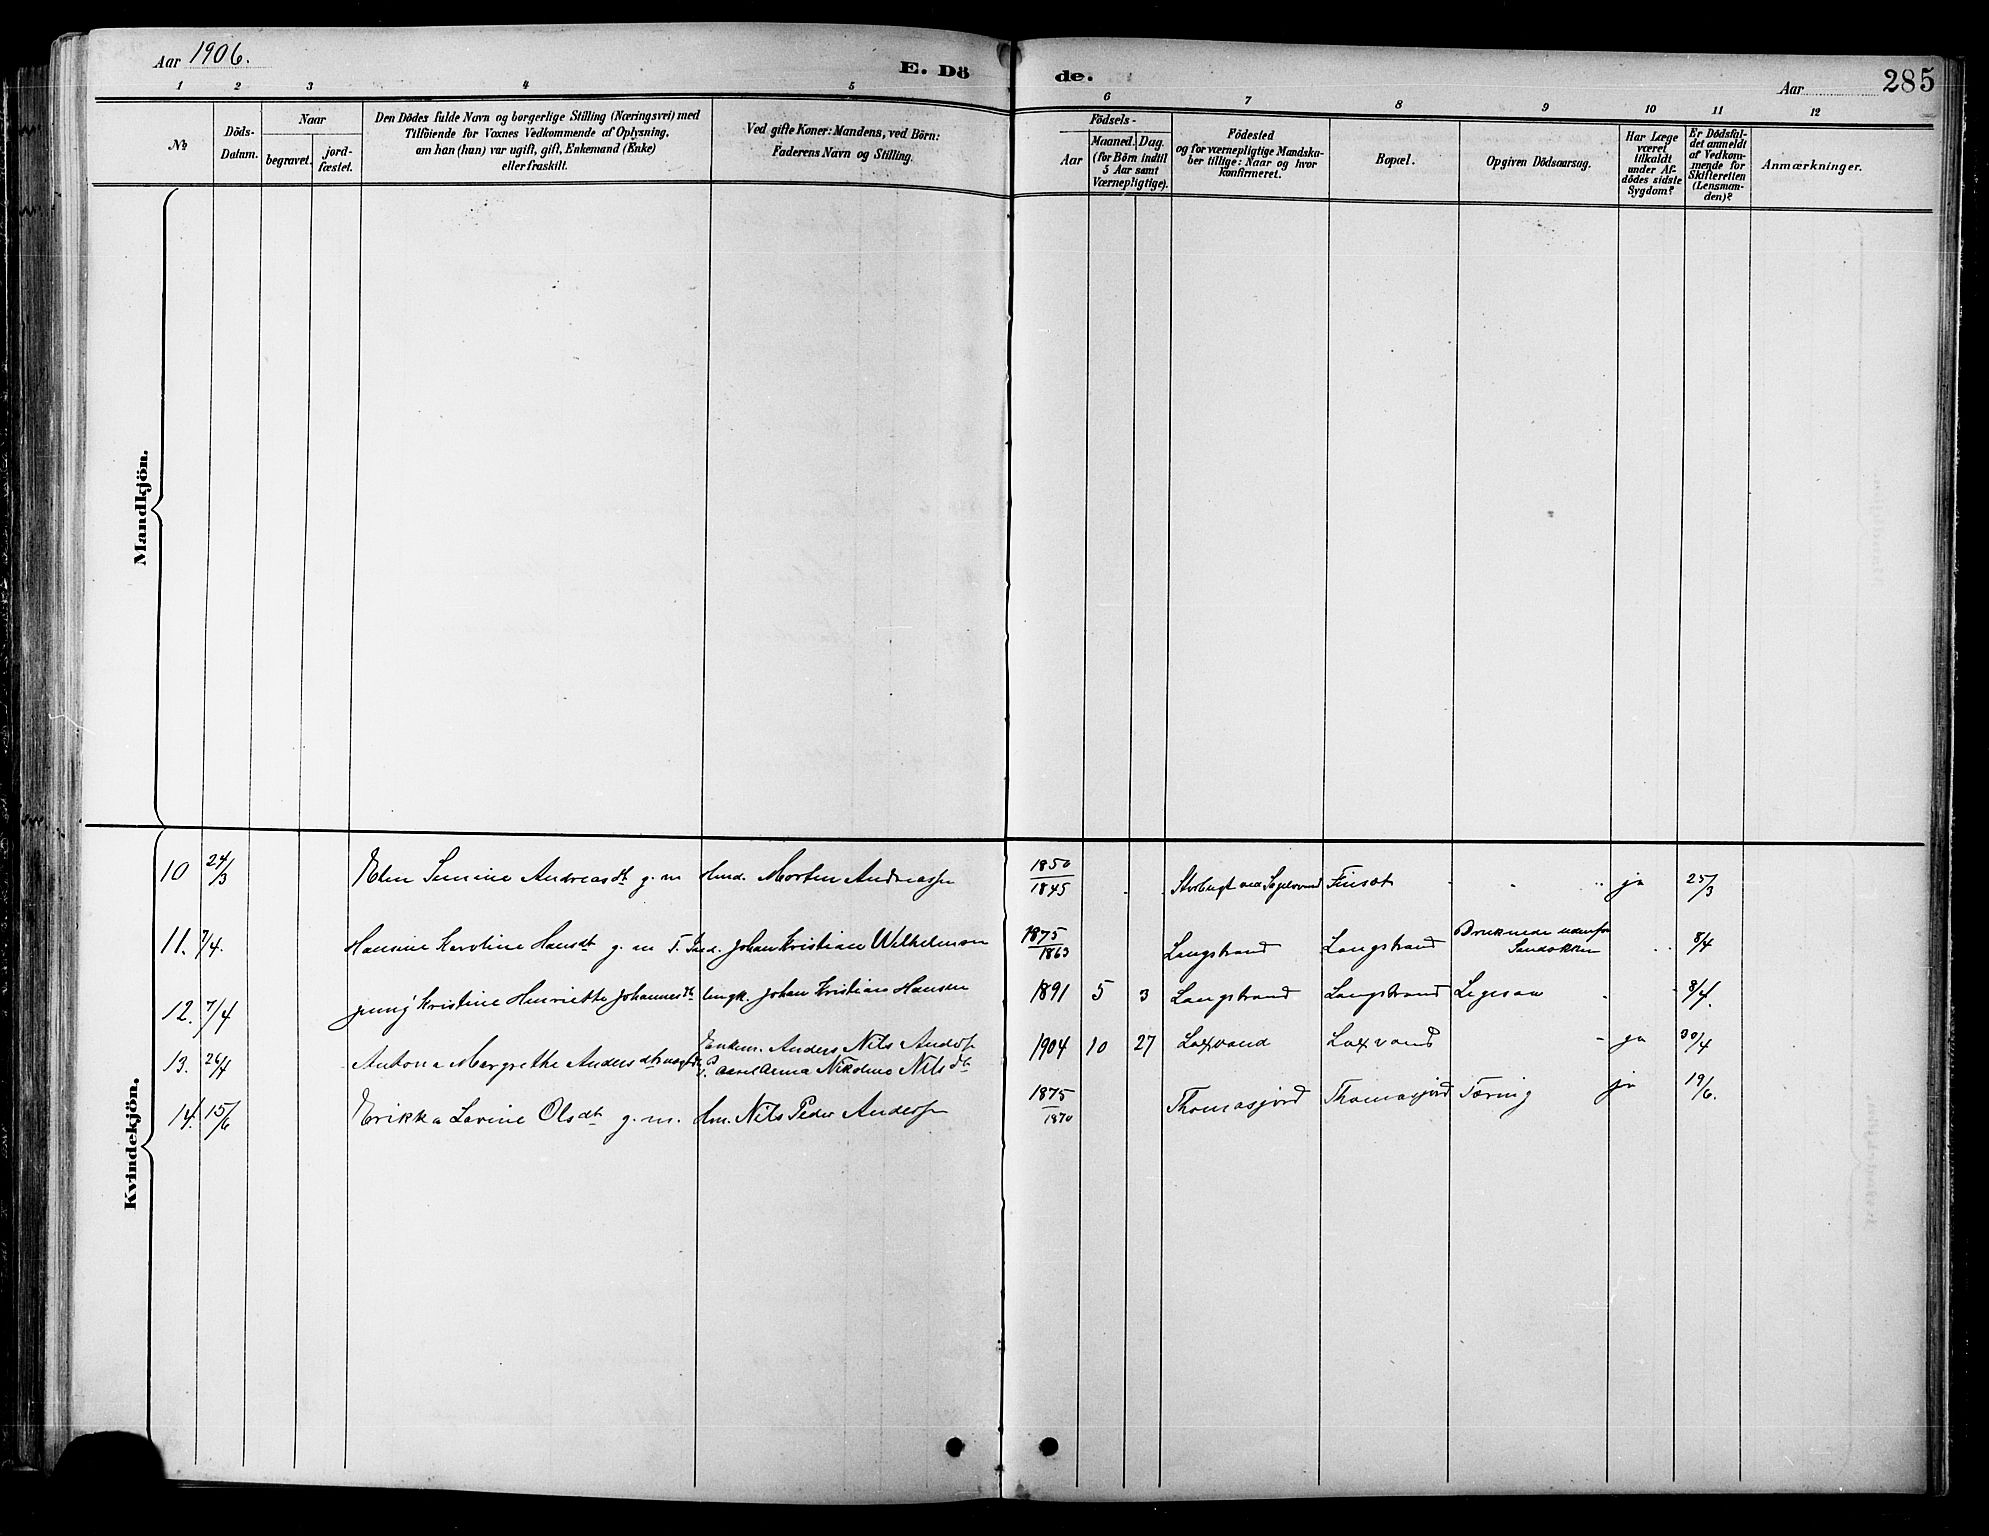 Aar 1906.
E. Dö
de.
Aar
285
1 2 3 4 5 6 7 8 9 10 11 12
№
Döds-
Datum.
Naar
begravet.
jord-
fæstet.
Den Dödes fulde Navn og borgerlige Stilling (Næringsvei) med
Tilföiende for Voxnes Vedkommende af Oplysning,
om han (hun) var ugift, gift, Enkemand (Enke)
eller fraskilt.
Ved gifte Koner: Mandens, ved Börn:
Faderens Navn og Stilling.
Födsels-
Aar
Maaned. Dag.
(for Börn indtil
5 Aar samt
Værnepligtige).
Födested
og for værnepligtige Mandska-
ber tillige: Naar og hvor
konfirmeret.
Bopæl.
Opgiven Dödsaarsag.
Har Læge
været
tilkaldt
under Af-
dödes sidste
Sygdom?
Er Dödsfal-
det anmeldt
af Vedkom-
mende for
Skifteretten
(Lensman-
den)?
Anmærkninger.
Mandkjön.
Kvindekjön.
10 24/3 Elen Andreasdt g. m Morten Andreass 1850/1845 Finsæt ja 25/3
11. 7/4. Hansine Karoline Hansdt g. m Johan Kristian Wilhelmsen 1875/1863 Langstrand Langstrand Druknede udenfor 8/4
12. 7/4 Jenny Kristine Henriette Johannesdt Johan Kristian Hansen 1891 5 3 Langstrand Langstrand Ligesaa 8/4.
13. 26/4 Antona Margrethe Andersdt Enkem. Anders Nils Anders
Anna Nikoline Nilsdt 1904 10 27 Laxvand Laxvand ja 30/4
14. 15/6 Erikka Lovine Olsdt g. m. Nils Peder Anders 1875/1870 Thomasjord Thomasjord Tæring ja 19/6.